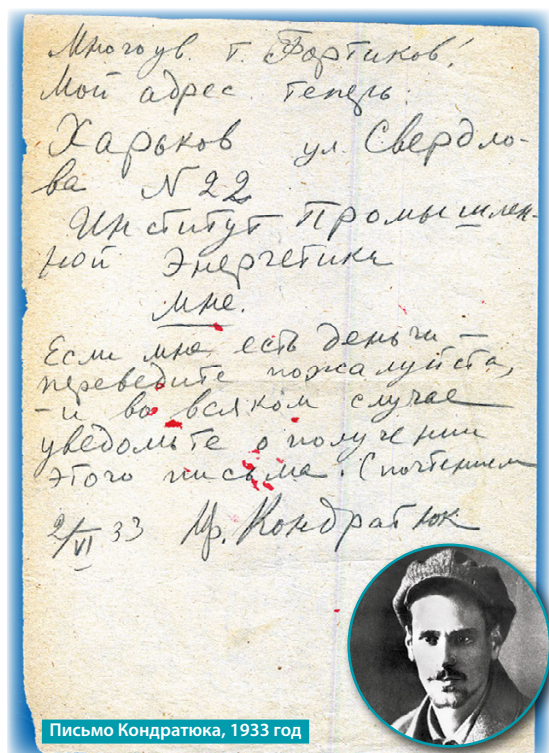 Многоув. т. Фортиков!
Мой адрес теперь:
Харьков ул. Свердло-
ва N 22
Институт Промышлен-
ной Энергетики
мне.
Если мне есть деньги —
переведите пожалуйста,
- и во всяком случае
уведомьте о получении
этого письма. С почтением
2/VI 33 Юр. Кондратюк
Письмо Кондратюка, 1933 год